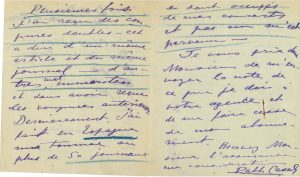 Plusieurs fois
j'ai reçu des cou
pures doubles - c'est
à dire d'un même
article et du même
journal d'au
tres numérotées
et d'un avoir reçu
des coupures antérieures
Dernièrement j'ai
fait en Espagne
une tournée où
plus de 50 journaux
se sont occupés
de mes concerts
et pas un m'est
parvenu -
Je vous prie
Monsieur de m'en
voyer la note de
ce que je dois à
votre agence et
de me faire cesser
de mon abonne
ment.
Recevez Mon
sieur l'assurance
Pablo Casals